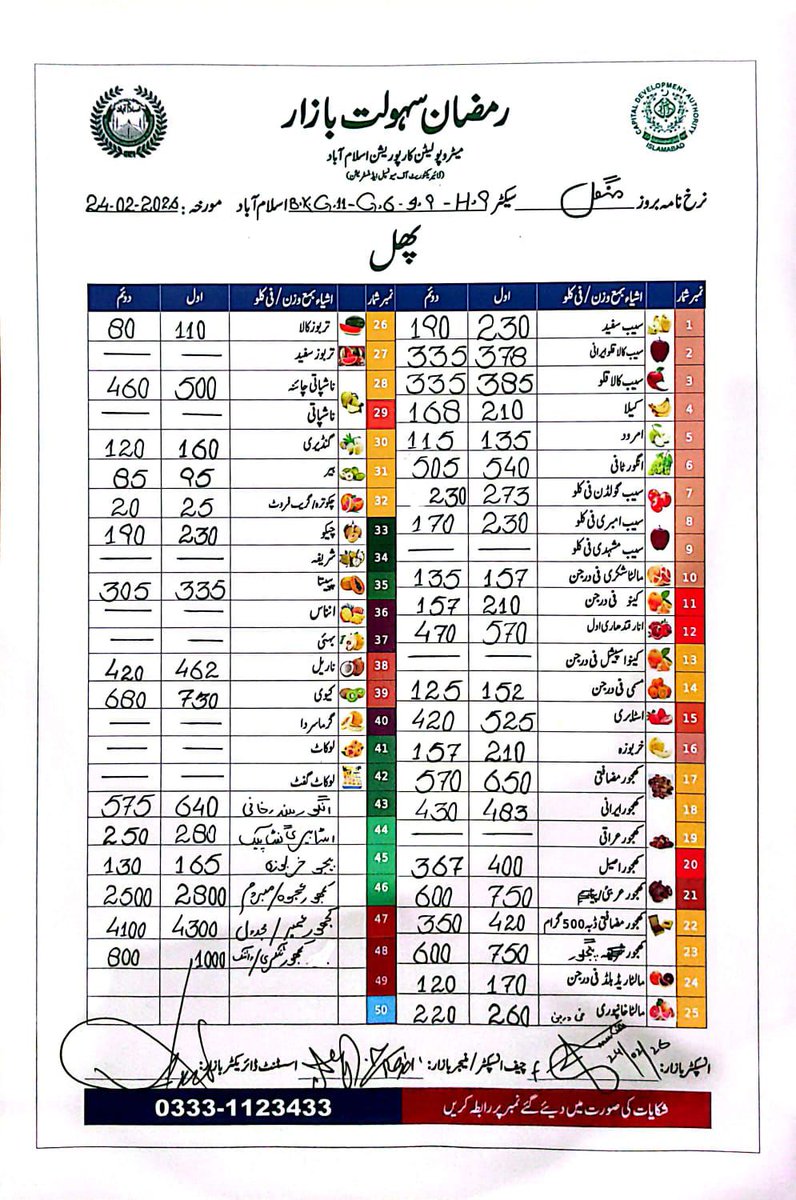 رمضان سہولت بازار
CAPITAL DEVELOPMENT AUTHORITY
ISLAMABAD
میٹروپولیٹن کارپوریشن اسلام آباد
(ڈائریکٹوریٹ آف میونسپل ایڈمنسٹریشن)
نرخ نامہ بروز منگل سیکٹر H.9 - 9.9 - G.6 - G.11 B.K اسلام آباد مورخہ: 24-02-2026
پھل
نمبر شمار اشیاء بمع وزن / فی کلو اول دوئم
1 سیب سفید 230 190
2 سیب کالا قلو ایرانی 378 335
3 سیب کالا قلو 385 335
4 کیلا 210 168
5 امرود 135 115
6 انگور ٹافی 540 505
7 سیب گولڈن فی کلو 273 230
8 سیب امبری فی کلو 230 170
9 سیب مشہدی فی کلو — —
10 مالٹا شکری فی درجن 157 135
11 کینو فی درجن 210 157
12 انار قندھاری اول 570 470
13 کینو اسپیشل فی درجن — —
14 مسمی فی درجن 152 125
15 اسٹابری 525 420
16 خربوزہ 210 157
17 کھجور مضافتی 650 570
18 کھجور ایرانی 483 430
19 کھجور عراقی — —
20 کھجور اصیل 400 367
21 کھجور عربی 750 600
22 کھجور مضافتی ڈبہ 500 گرام 420 350
23 کھجور پنجگور 750 600
24 مالٹا ریڈ بلڈ فی درجن 170 120
25 مالٹا خانپوری فی درجن 260 220
نمبر شمار اشیاء بمع وزن / فی کلو اول دوئم
26 تربوز کالا 110 80
27 تربوز سفید — —
28 ناشپاتی چائنہ 500 460
29 ناشپاتی — —
30 گنڈیری 160 120
31 بیر 95 85
32 چکوترہ / گریپ فروٹ 25 20
33 چیکو 230 190
34 شریفہ — —
35 پپیتا 335 305
36 انناس — —
37 بہی — —
38 ناریل 462 420
39 کیوی 730 680
40 گرما سردا — —
41 لوکاٹ — —
42 لوکاٹ گفٹ — —
43 انگور سندرخانی 640 575
44 اسٹابری پیک 280 250
45 خربوزہ 165 130
46 کھجور عجوہ / مبروم 2800 2500
47 کھجور عنبر / مجدول 4300 4100
48 کھجور 1000 800
49
50
انسپکٹر بازار: 24/02/26 چیف انسپکٹر / منیجر بازار: اسسٹنٹ ڈائریکٹر بازار:
شکایات کی صورت میں دیئے گئے نمبر پر رابطہ کریں 0333-1123433